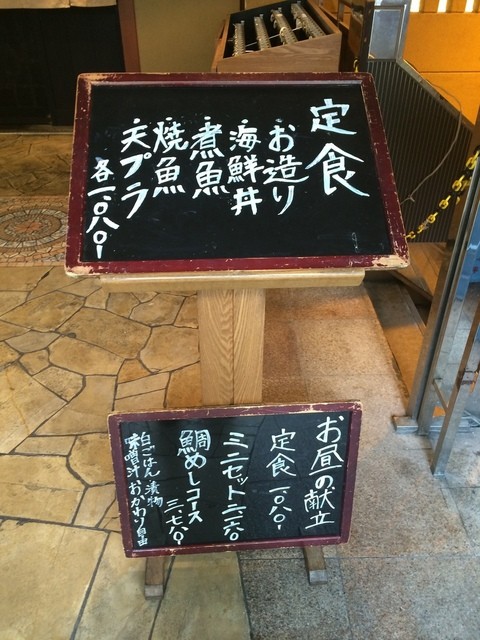 定食
・お造り
・海鮮丼
・煮魚
・焼魚
・天プラ
各一、〇八〇ー
お昼の献立
定食 一、〇八〇ー
ミニセット 二、一六〇
鯛めしコース 三、七八〇ー
白ごはん 漬物
味噌汁 おかわり自由